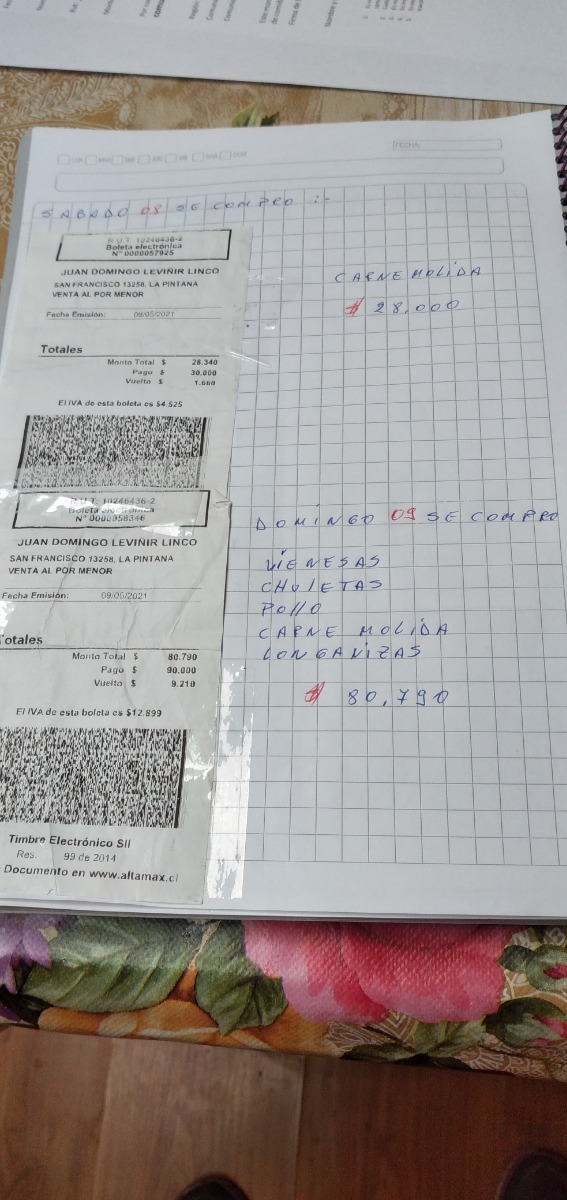 FECHA:
SABADO 08 SE COMPRO :-
R.U.T. 10246436-2
Boleta electrónica
N° 0000057925
JUAN DOMINGO LEVIÑIR LINCO
SAN FRANCISCO 13258, LA PINTANA
VENTA AL POR MENOR
Fecha Emisión: 08/05/2021
Totales
Monto Total $ 28.340
Pago $ 30.000
Vuelto $ 1.660
El IVA de esta boleta es $4.525
CARNE MOLIDA
$ 28,000
R.U.T. 10246436-2
Boleta electrónica
N° 0000058346
JUAN DOMINGO LEVIÑIR LINCO
SAN FRANCISCO 13258, LA PINTANA
VENTA AL POR MENOR
Fecha Emisión: 09/05/2021
Totales
Monto Total $ 80.790
Pago $ 90.000
Vuelto $ 9.210
El IVA de esta boleta es $12.899
Timbre Electrónico SII
Res. 99 de 2014
Documento en www.altamax.cl
DOMINGO 09 SE COMPRO
VIENESAS
CHULETAS
POLLO
CARNE MOLIDA
LONGANIZAS
$ 80,790